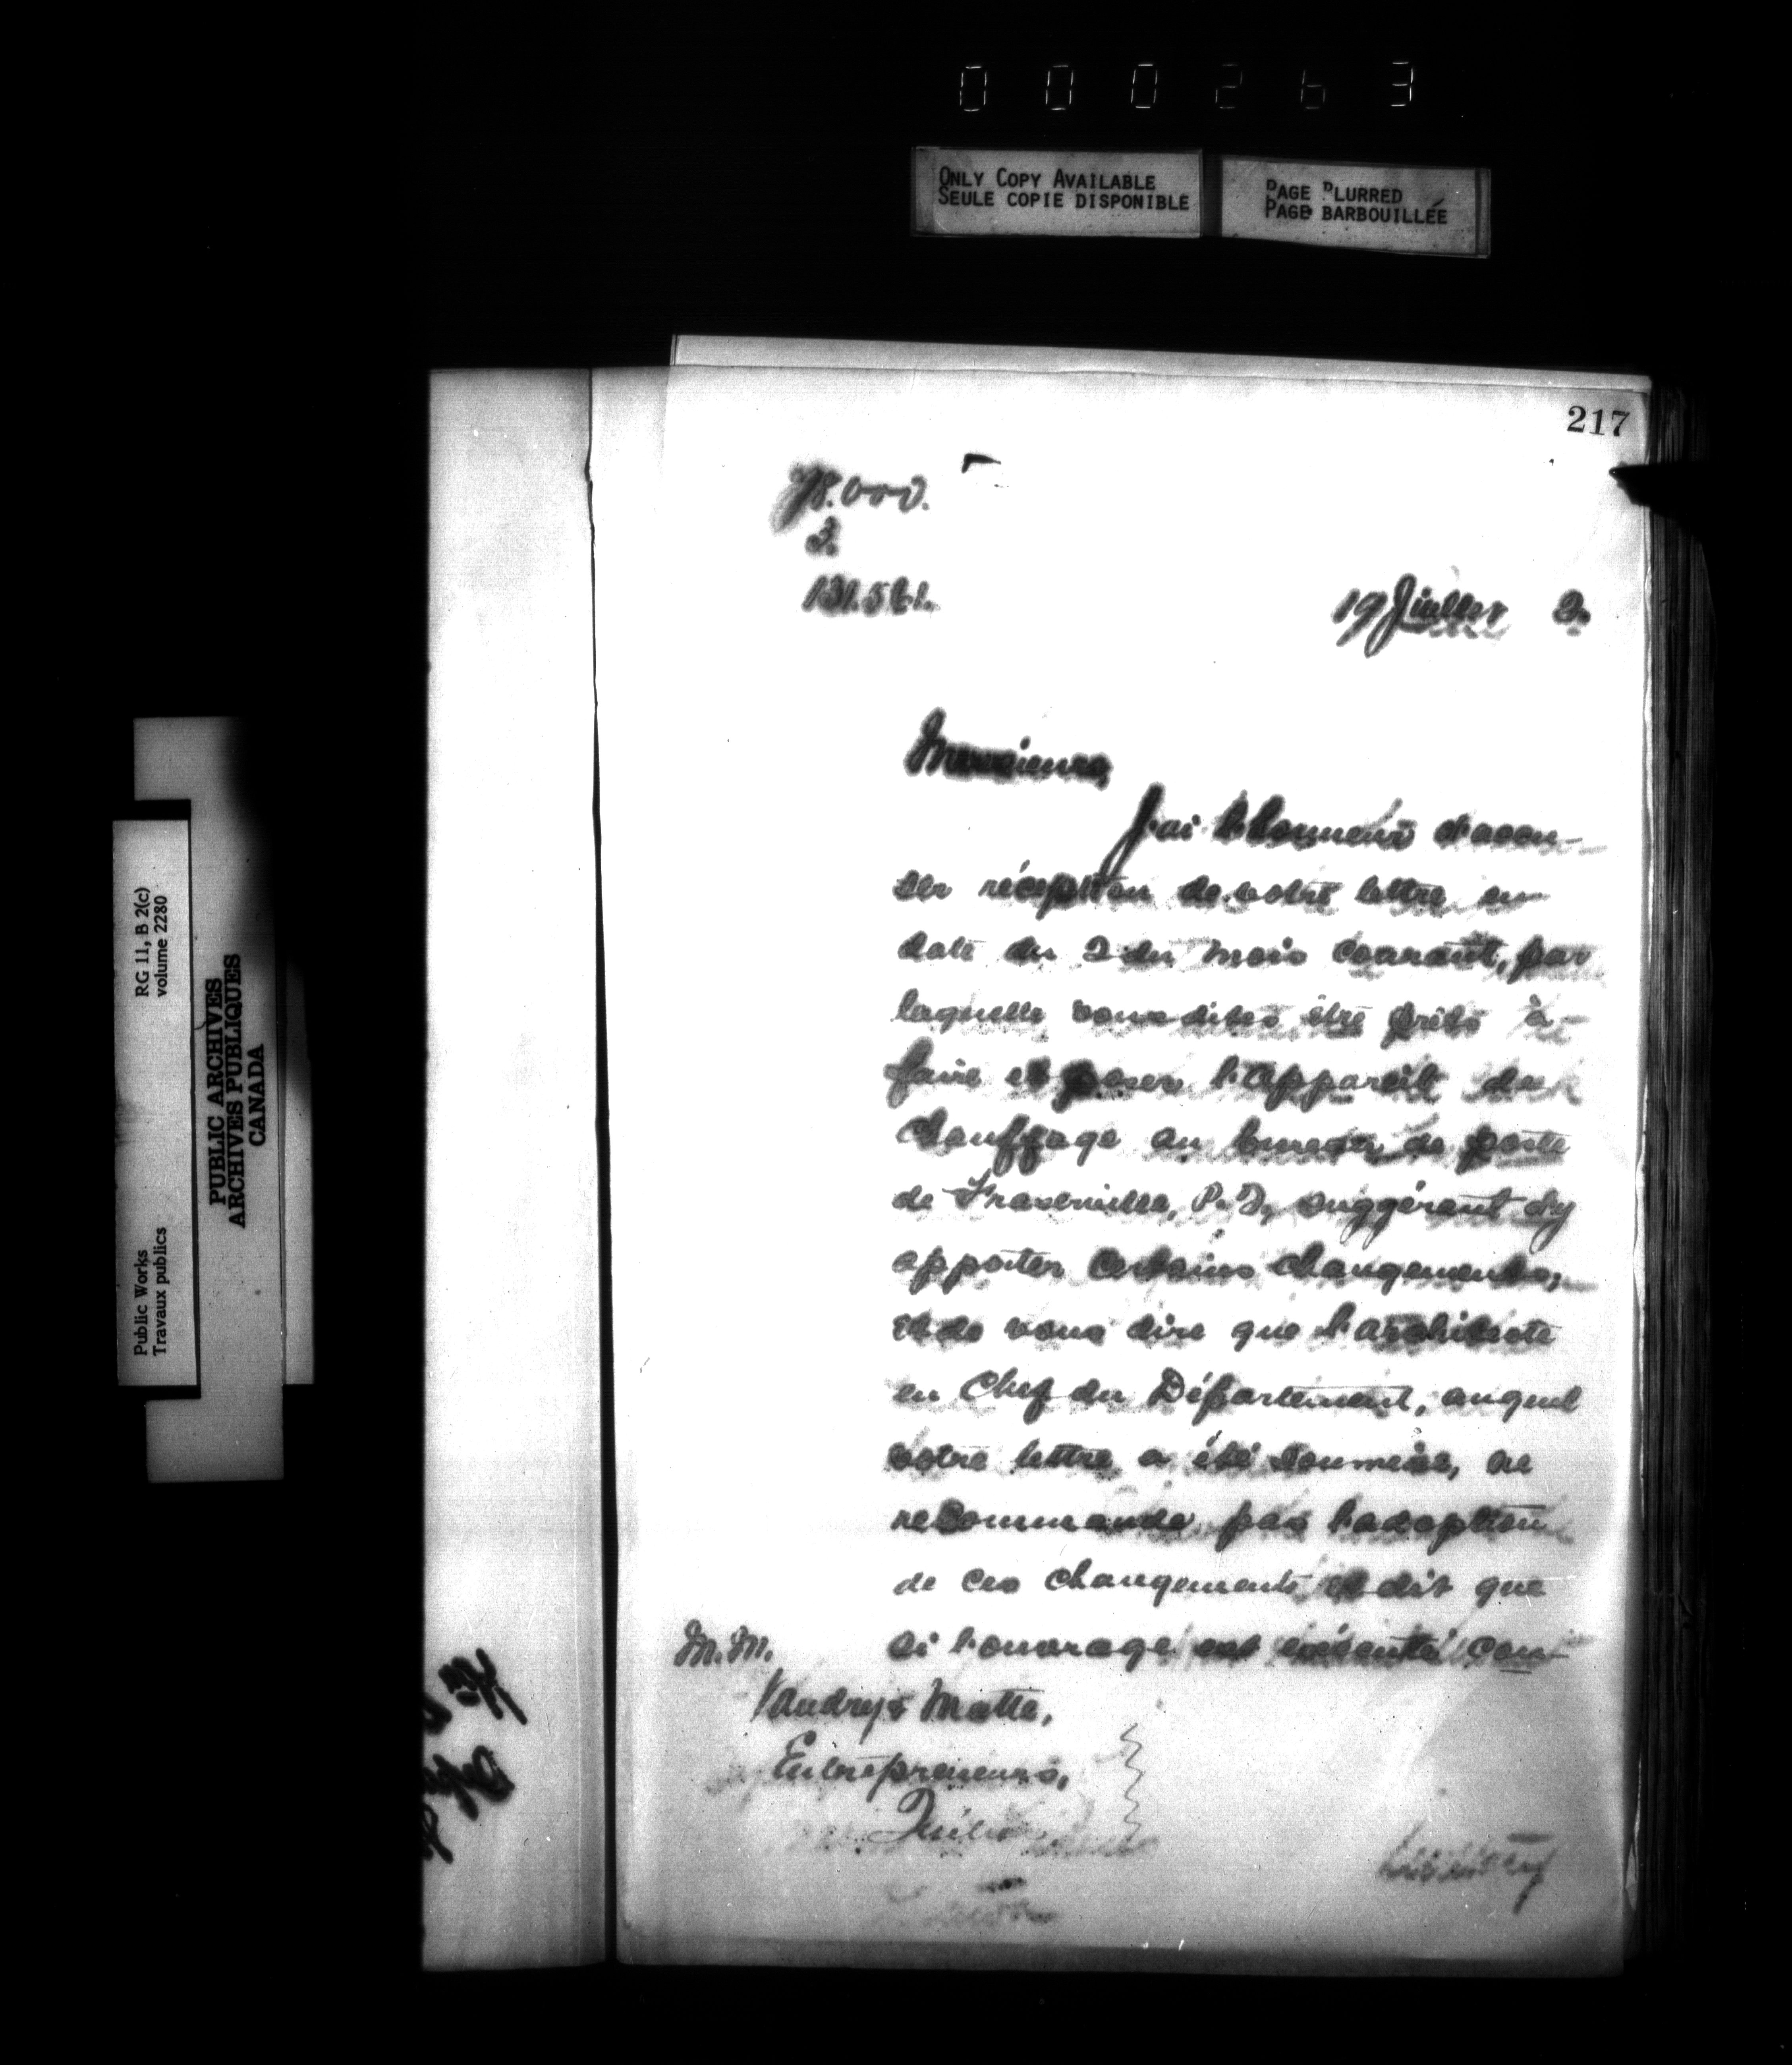 000263
ONLY COPY AVAILABLE
SEULE COPIE DISPONIBLE
PAGE BLURRED
PAGE BARBOUILLÉE
217
78.000.
3.
131.561.
19 Juillet 2.
Messieurs,
J'ai l'honneur d'accu-
ser réception de votre lettre en
date du 2 du mois courant, par
laquelle vous dites être prêts à
faire et poser l'appareil de
chauffage au bureau de poste
de Fraserville, P.Q., suggérant d'y
apporter certains changements,
et de vous dire que l'architecte
en Chef du Département, auquel
votre lettre a été soumise, ne
recommande pas l'adoption
de ces changements et dit que
si l'ouvrage est exécuté con-
M.M.
Vandry & Matte,
Entrepreneurs,
Québec
RG 11, B 2(c)
volume 2280
Public Works
Travaux publics
PUBLIC ARCHIVES
ARCHIVES PUBLIQUES
CANADA